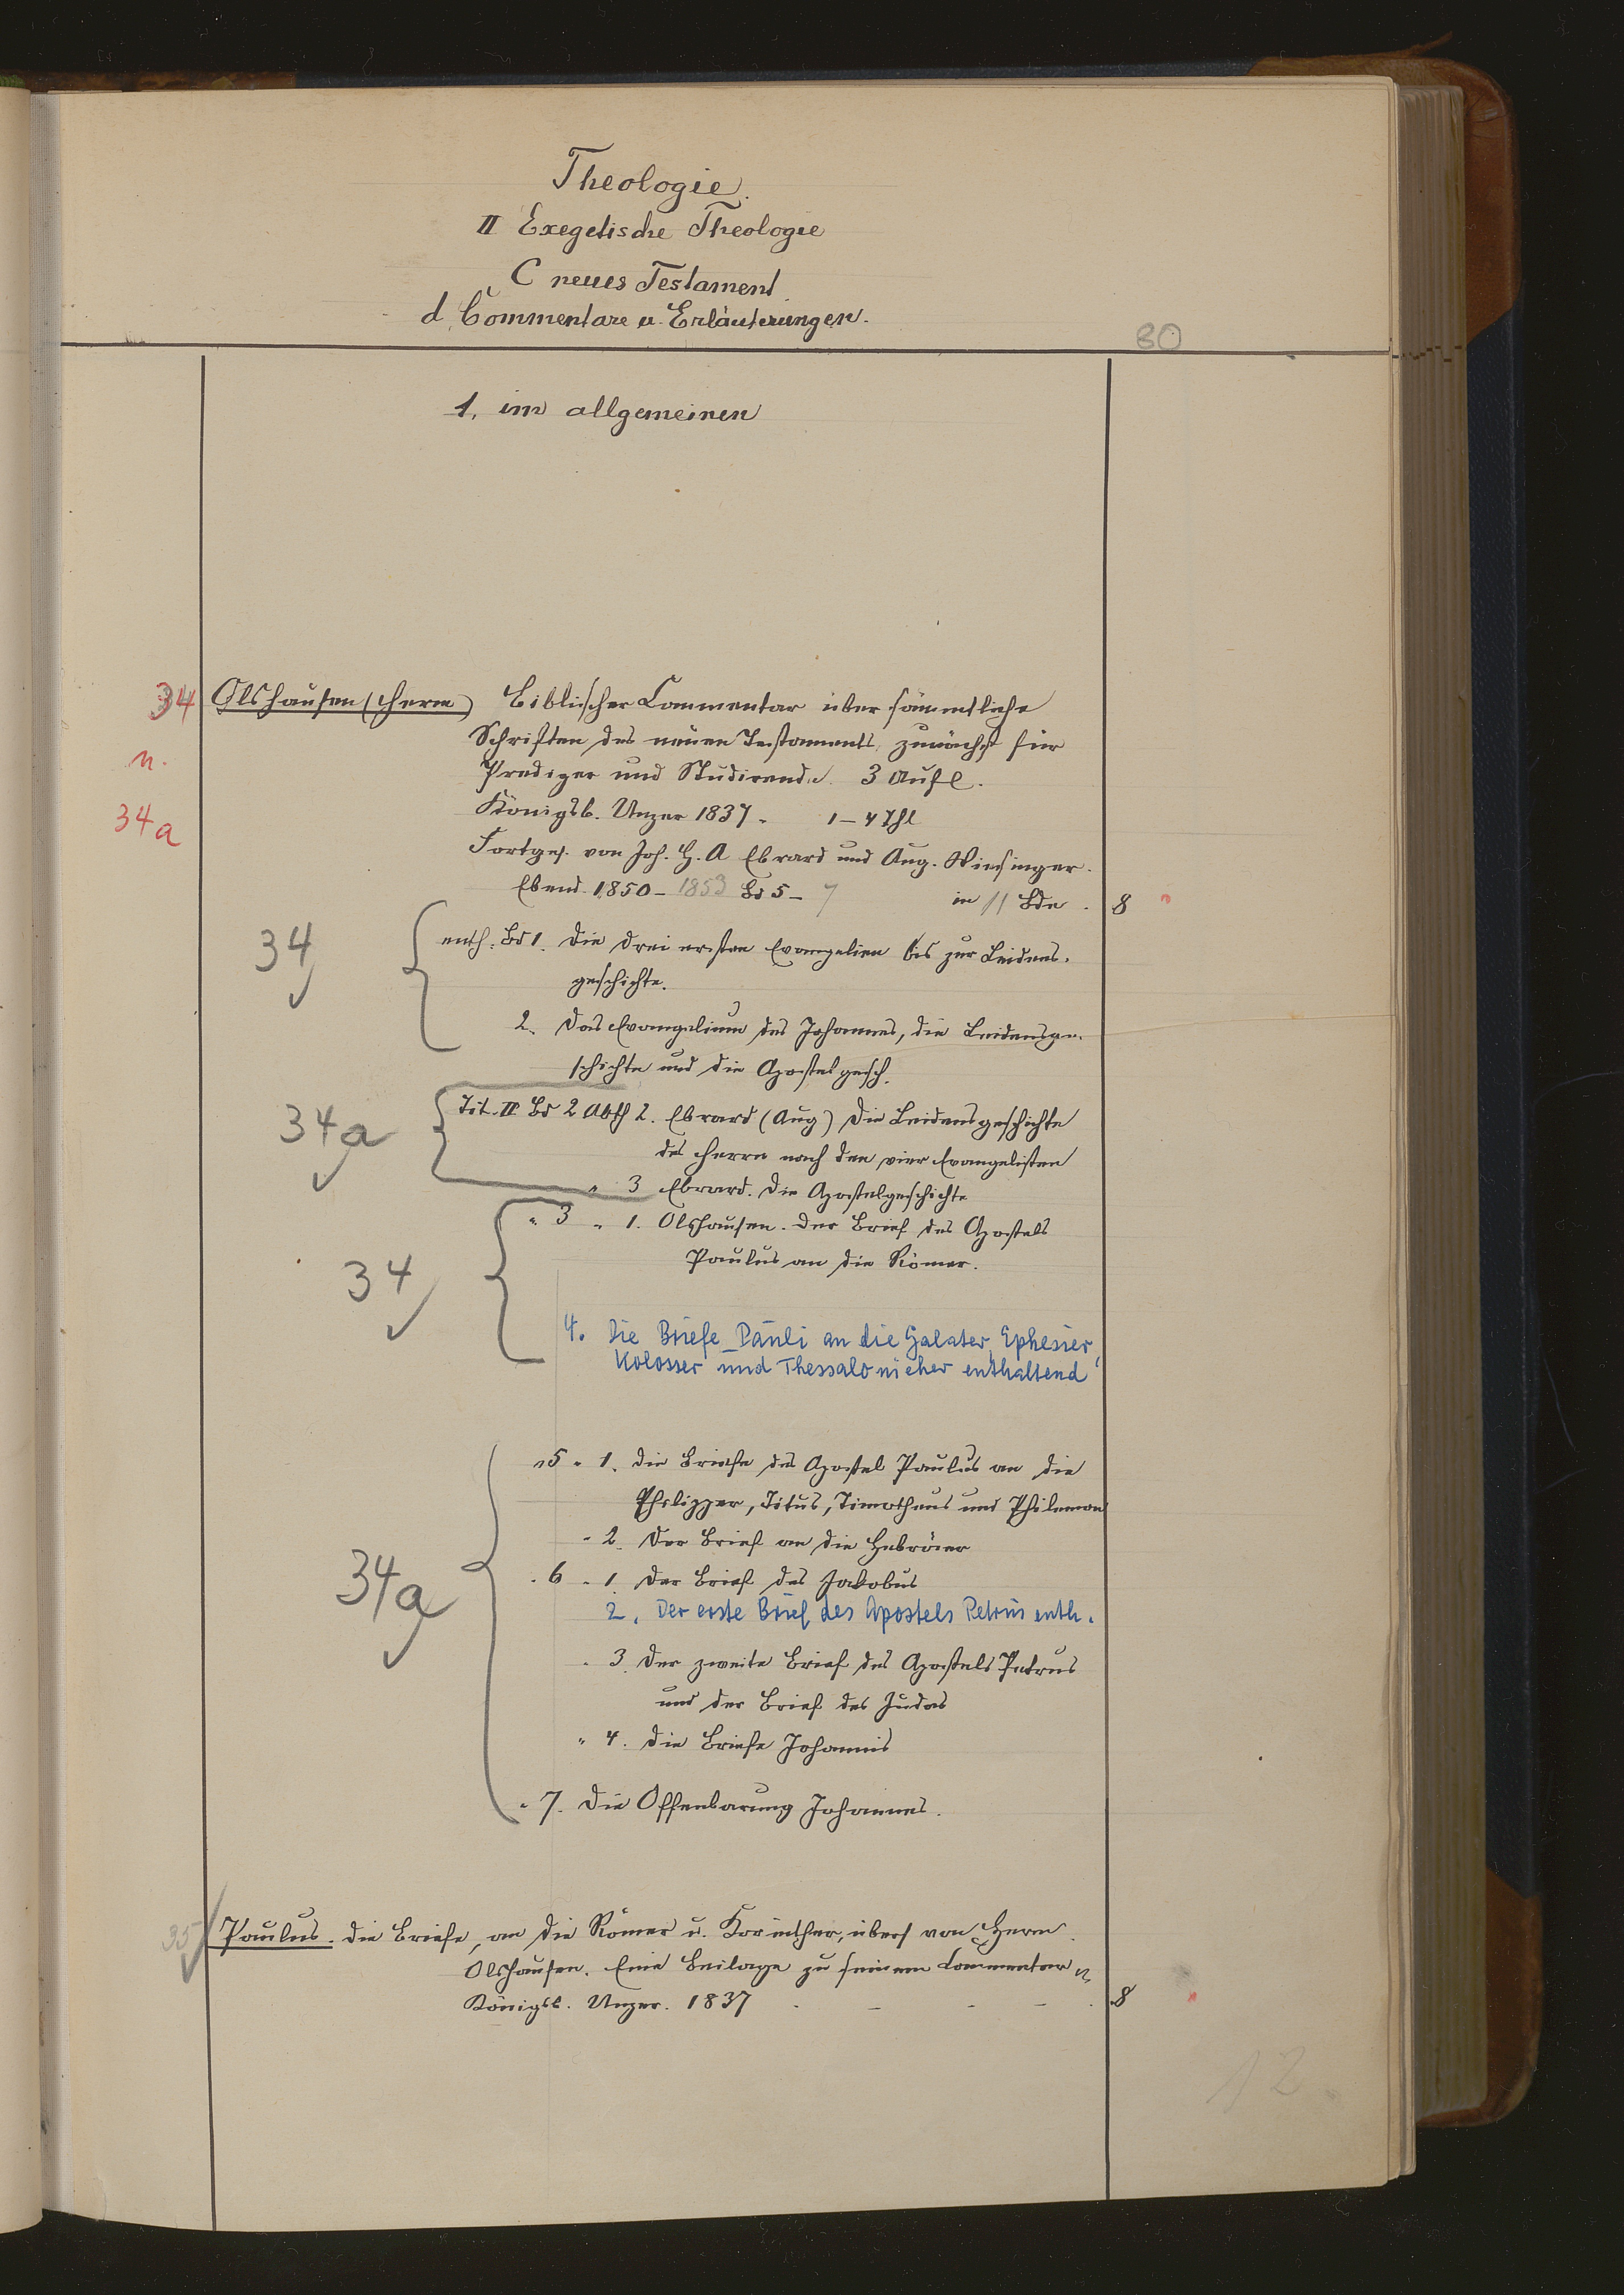 Theologie.
II Exegetische Theologie
C neues Testament
d. Commentare u. Erläuterungen.
80
1. im allgemeinen
34 Olshausen (Herm) Biblischer Commentar über sämmtliche
Schriften des neuen Testaments zunächst für
n.
Prediger und Studirende. 3 Aufl.
34a
Königsb. Unzer 1837. 1-4 Thl
Fortges. von Joh. H. A Ebrard und Aug. Wiesinger.
Ebend. 1850-1853 Bd 5-7 in 11 Bde. 8
34
enth. Bd 1. Die drei ersten Evangelien bis zur Leidens-
geschichte.
2. Das Evangelium des Johannes, die Leidensge-
schichte und die Apostelgesch.
34a
Tit. II Bd 2 Abth 2. Ebrard (Aug) Die Leidensgeschichte
des Herrn nach den vier Evangelisten
" 3 Ebrard. Die Apostelgeschichte
34
" 3 " 1. Olshausen. Der Brief des Apostels
Paulus an die Römer.
4. Die Briefe Pauli an die Galater, Ephesier,
Kolosser und Thessalonicher enthaltend
34a
" 5 " 1. Die Briefe des Apostel Paulus an die
Philipper, Titus, Timotheus und Philemon
" 2. Der Brief an die Hebräer
" 6 " 1. Der Brief des Jakobus
2. Der erste Brief des Apostels Petrus enth.
" 3. Der zweite Brief des Apostels Petrus
und der Brief des Judas
" 4. Die Briefe Johannis
" 7. Die Offenbarung Johannes.
35 Paulus. Die Briefe, an die Römer u. Korinther, übers von Herm.
Olshausen. Eine Beilage zu seinem Commentar
Königsb. Unzer. 1837 - - - 8
12